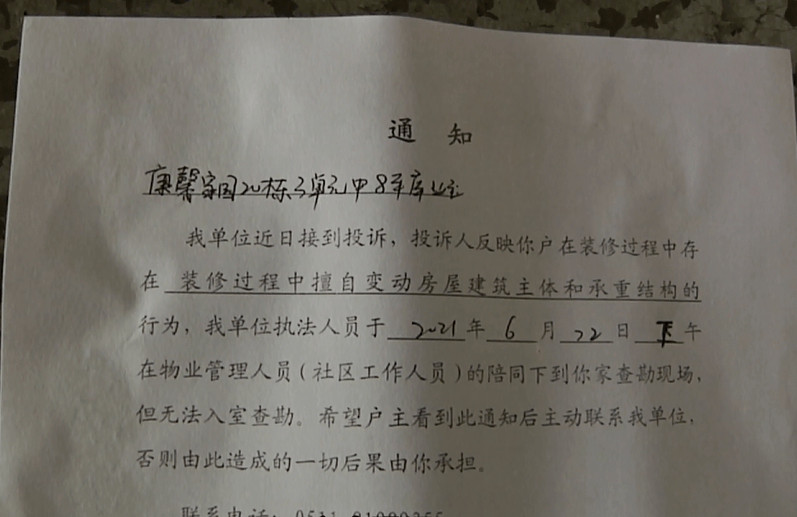 通 知
康馨家园20栋3单元中8车库业主
我单位近日接到投诉，投诉人反映你户在装修过程中存
在 装修过程中擅自变动房屋建筑主体和承重结构的
行为，我单位执法人员于 2021 年 6 月 22 日 下 午
在物业管理人员（社区工作人员）的陪同下到你家查勘现场，
但无法入室查勘。希望户主看到此通知后主动联系我单位，
否则由此造成的一切后果由你承担。
联系电话：0531